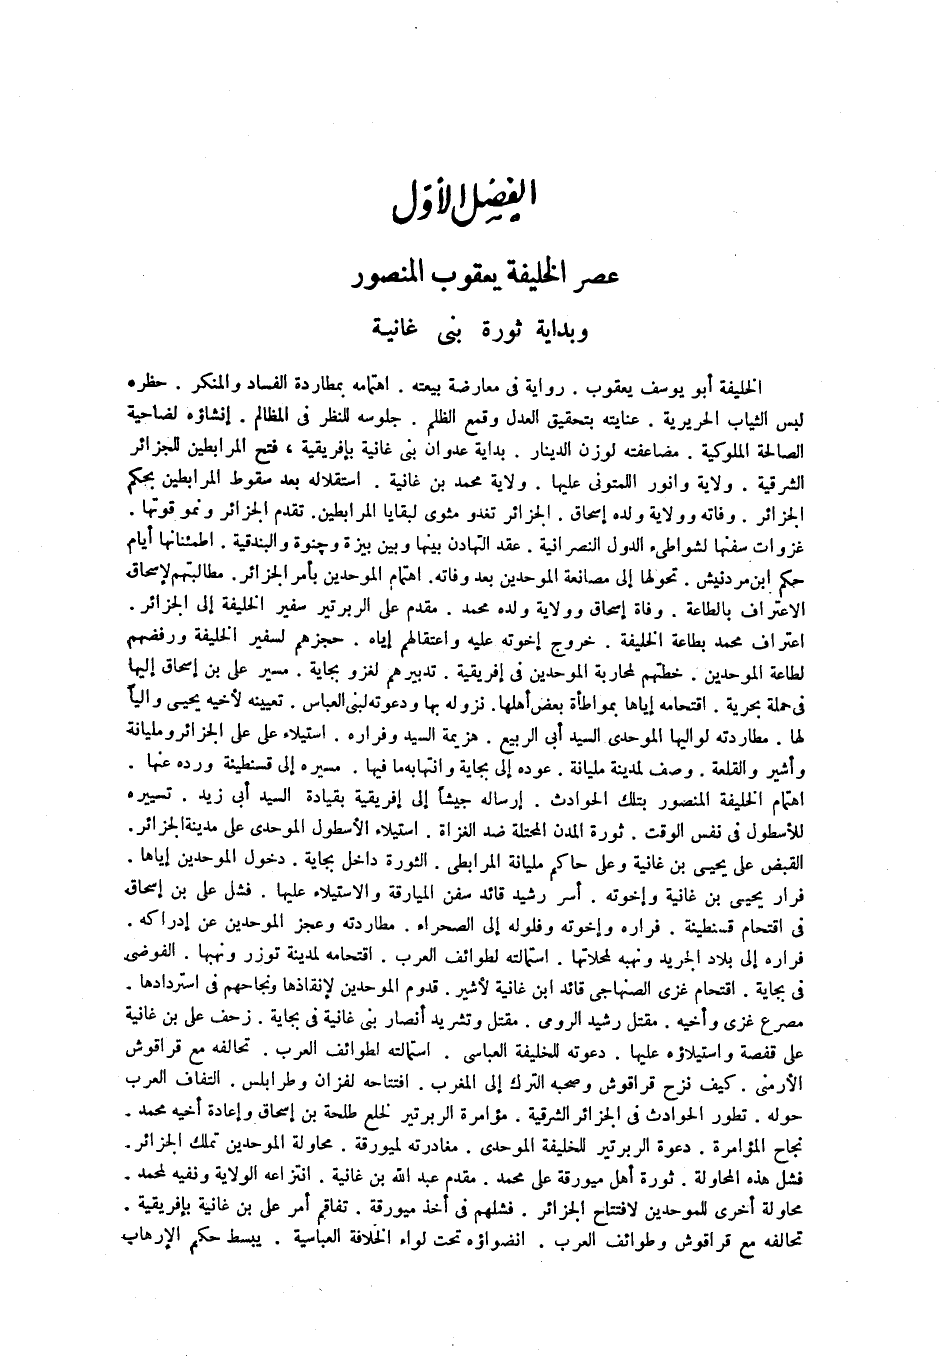 الفصل الأول
عصر الخليفة يعقوب المنصور
وبداية ثورة بنى غانية
الخليفة أبو يوسف يعقوب . رواية فى معارضة بيعته . اهتمامه بمطاردة الفساد والمنكر . حظره
لبس الثياب الحريرية . عنايته بتحقيق العدل وقمع الظلم . جلوسه للنظر فى المظالم . إنشاؤه لضاحية
الصالحة الملوكية . مضاعفته لوزن الدينار . بداية عدوان بنى غانية بإفريقية ، فتح المرابطين للجزائر
الشرقية . ولاية وانور اللمتونى عليها . ولاية محمد بن غانية . استقلاله بعد سقوط المرابطين بحكم
الجزائر . وفاته وولاية ولده إسحاق . الجزائر تغدو مثوى لبقايا المرابطين. تقدم الجزائر ونمو قوتها .
غزوات سفنها لشواطىء الدول النصرانية . عقد التهادن بينها وبين بيزة وچنوة والبندقية . اطمئنانها أيام
حكم ابن مردنيش . تحولها إلى مصانعة الموحدين بعد وفاته. اهتمام الموحدين بأمر الجزائر. مطالبتهم لإسحاق
الاعتراف بالطاعة . وفاة إسحاق وولاية ولده محمد . مقدم على الربرتير سفير الخليفة إلى الجزائر .
اعتراف محمد بطاعة الخليفة . خروج إخوته عليه واعتقالهم إياه . حجزهم لسفير الخليفة ورفضهم
لطاعة الموحدين . خطتهم لمحاربة الموحدين فى إفريقية . تدبيرهم لغزو بجاية . مسير على بن إسحاق إليها
فى حملة بحرية . اقتحامه إياها بمواطأة بعض أهلها. نزوله بها ودعوته لبنى العباس . تعيينه لأخيه يحيى والياً
لها . مطاردته لواليها الموحدى السيد أبى الربيع . هزيمة السيد وفراره . استيلاء على على الجزائر ومليانة
وأشير والقلعة . وصف لمدينة مليانة . عوده إلى بجاية وانتهابه ما فيها . مسيره إلى قسنطينة ورده عنها .
اهتمام الخليفة المنصور بتلك الحوادث . إرساله جيشاً إلى إفريقية بقيادة السيد أبى زيد . تسييره
للأسطول فى نفس الوقت . ثورة المدن المحتلة ضد الغزاة . استيلاء الأسطول الموحدى على مدينة الجزائر.
القبض على يحيى بن غانية وعلى حاكم مليانة المرابطى . الثورة داخل بجاية . دخول الموحدين إياها .
فرار يحيى بن غانية وإخوته . أسر رشيد قائد سفن الميارقة والاستيلاء عليها . فشل على بن إسحاق
فى اقتحام قسنطينة . فراره وإخوته وفلوله إلى الصحراء . مطاردته وعجز الموحدين عن إدراكه .
فراره إلى بلاد الجريد ونهبه لمحلاتها . استمالته لطوائف العرب . اقتحامه لمدينة توزر ونهبها . الفوضى
فى بجاية . اقتحام غزى الصنهاجى قائد ابن غانية لأشير . قدوم الموحدين لإنقاذها ونجاحهم فى استردادها .
مصرع غزى وأخيه . مقتل رشيد الرومى . مقتل وتشريد أنصار بنى غانية فى بجاية . زحف على بن غانية
على قفصة واستيلاؤه عليها . دعوته للخليفة العباسى . استمالته لطوائف العرب . تحالفه مع قراقوش
الأرمنى . كيف نزح قراقوش وصحبه الترك إلى المغرب . افتتاحه لفزان وطرابلس . التفاف العرب
حوله . تطور الحوادث فى الجزائر الشرقية . مؤامرة الربرتير لخلع طلحة بن إسحاق وإعادة أخيه محمد .
نجاح المؤامرة . دعوة الربرتير للخليفة الموحدى . مغادرته لميورقة . محاولة الموحدين تملك الجزائر .
فشل هذه المحاولة . ثورة أهل ميورقة على محمد . مقدم عبد الله بن غانية . انتزاعه الولاية ونفيه لمحمد .
محاولة أخرى للموحدين لافتتاح الجزائر . فشلهم فى أخذ ميورقة . تفاقم أمر على بن غانية بإفريقية .
تحالفه مع قراقوش وطوائف العرب . انضواؤه تحت لواء الخلافة العباسية . يبسط حكم الإرهاب